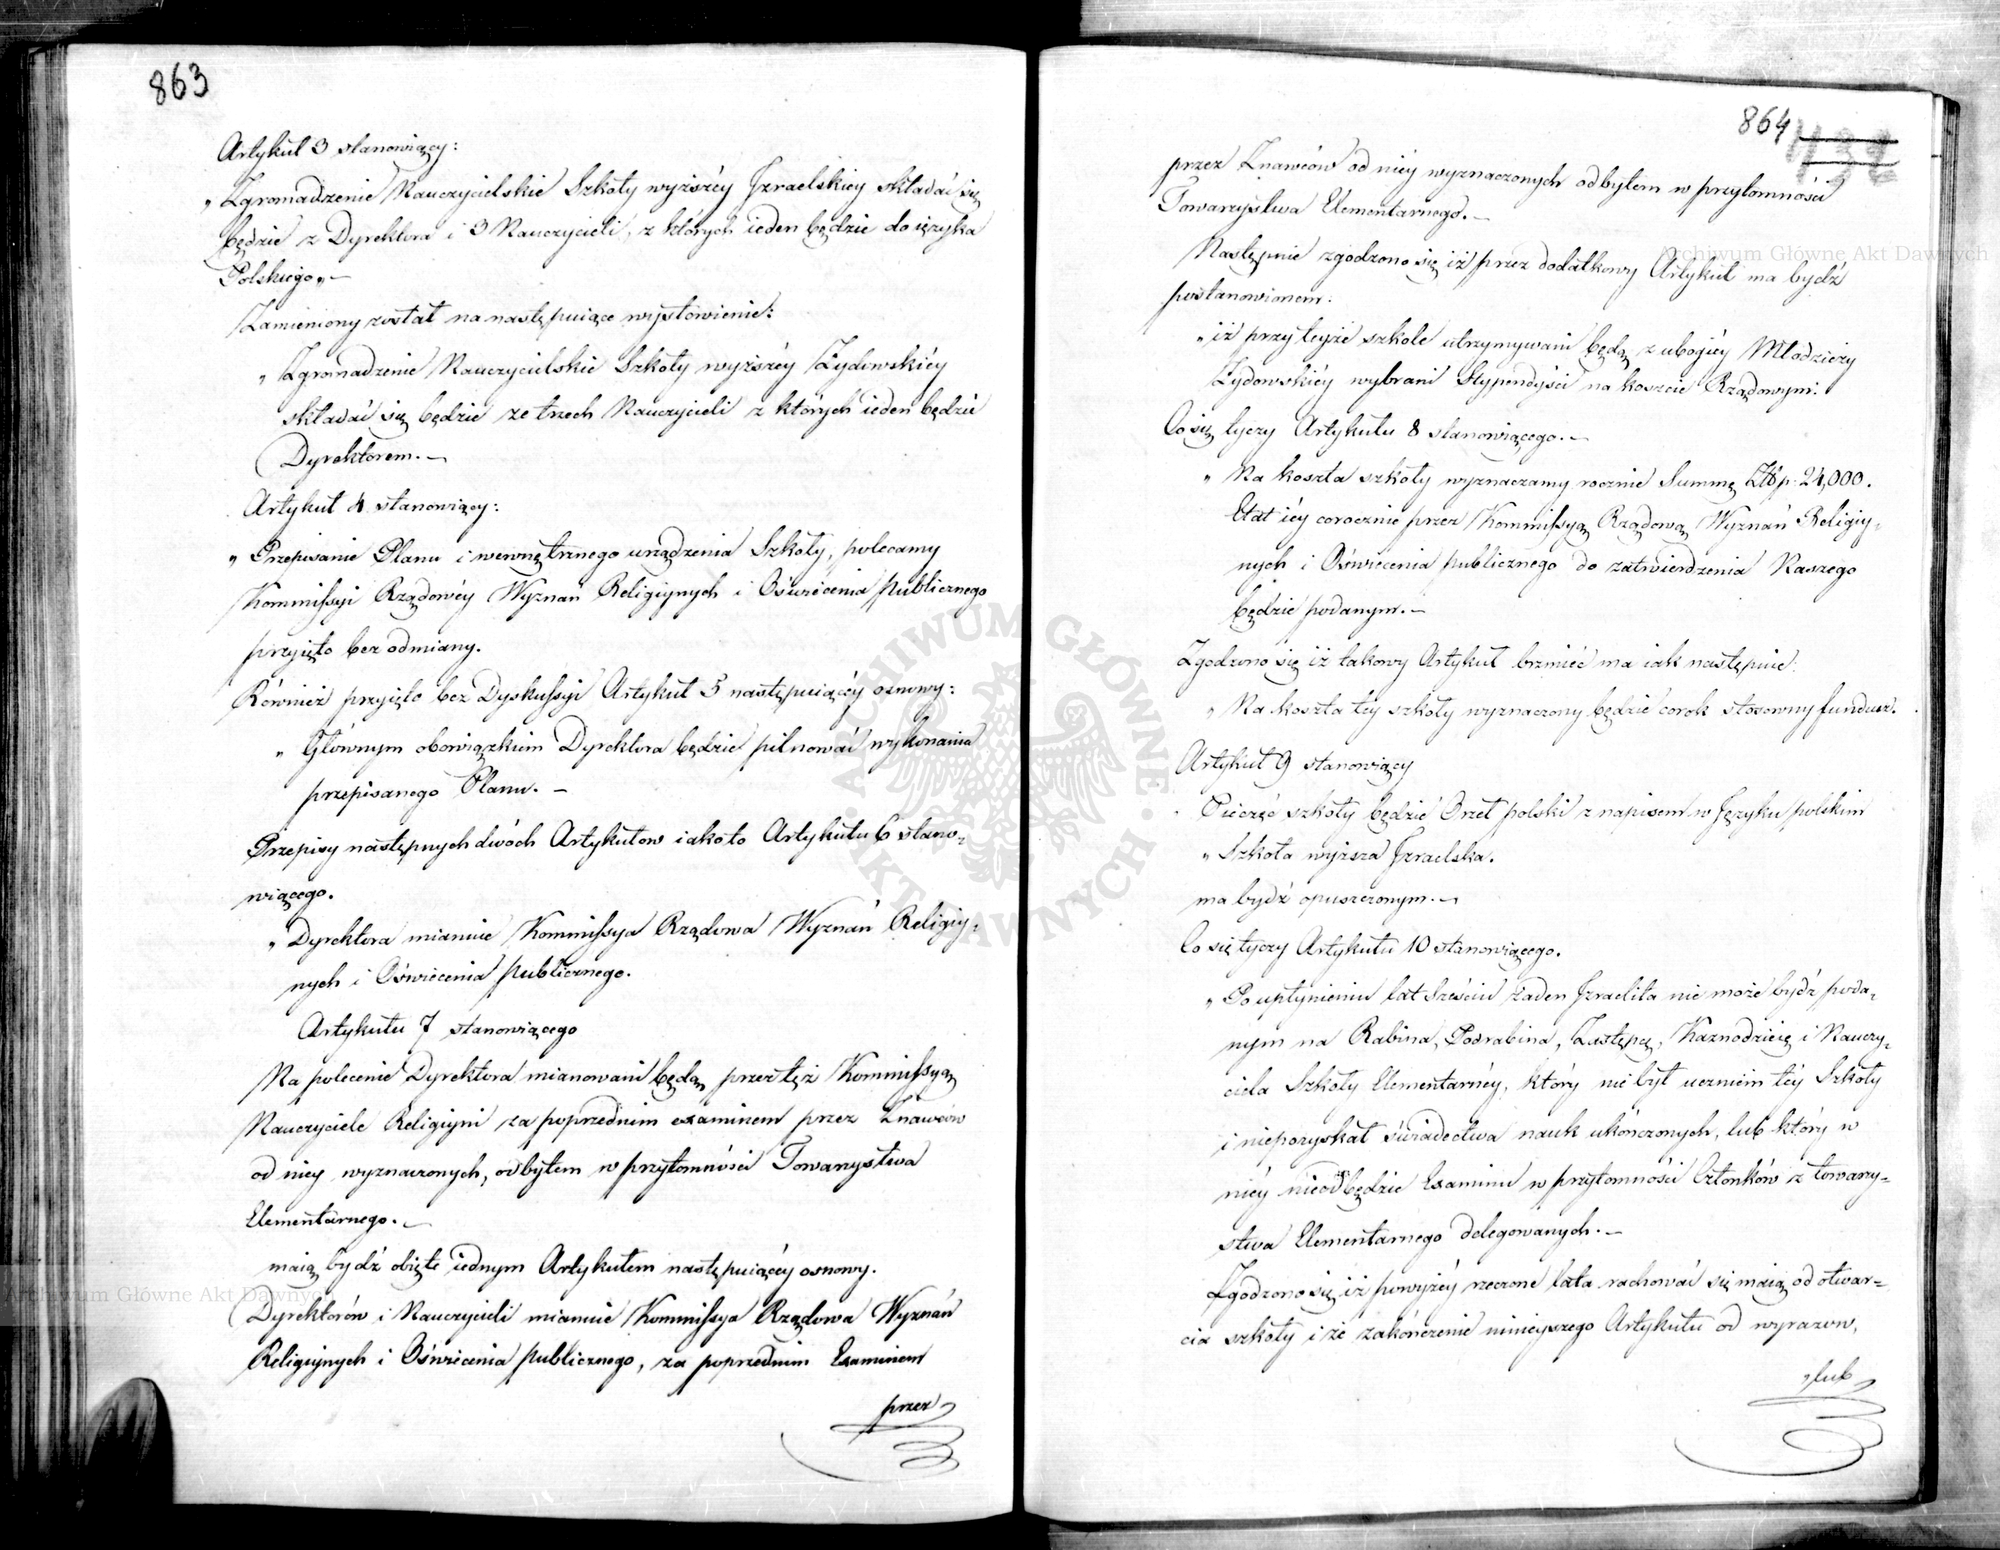 863
Artykuł 3 stanowiący:
„Zgromadzenie Nauczycielskie Szkoły wyższéy Izraelskiey składać się
będzie z Dyrektora i 3 Nauczycieli, z których ieden będzie do ięzyka
Polskiego„—
Zamieniony został na następuiące wysłowienie:
„Zgromadzenie Nauczycielskie Szkoły wyższéy Żydowskiéy
składać się będzie ze trzech Nauczycieli z których ieden będzie
Dyrektorem.—
Artykuł 4 stanowiący:
„Przepisanie Planu i wewnętrznego urządzenia Szkoły, polecamy
Kommissyi Rządowéy Wyznań Religiynych i Oświecenia publicznego
przyięto bez odmiany.
Również przyięto bez Dyskussyi Artykuł 5 następuiącéy osnowy:
„Głównym obowiązkiem Dyrektora będzie pilnować wykonania
przepisanego Planu.—
Przepisy następnych dwóch Artykułow iako to Artykułu 6 stano-
wiącego.
„Dyrektora mianuie Kommissya Rządowa Wyznań Religiy-
nych i Oświecenia publicznego.
Artykułu 7 stanowiącego
Na polecenie Dyrektora mianowani będą, przez tęż Kommissyą
Nauczyciele Religiyni za poprzednim examinem przez Znawców
od niey wyznaczonych, odbytem w przytomności Towarzystwa
Elementarnego.—
maią bydź obięte iednym Artykułem następuiącéy osnowy.
Dyrektorów i Nauczycieli mianuie Kommissya Rządowa Wyznań
Religiynych i Oświecenia publicznego, za poprzednim Examinem
przez
864
przez Znawców od niéy wyznaczonych odbytem w przytomności
Towarzystwa Elementarnego.—
Następnie zgodzono się iż przez dodatkowy Artykuł ma bydź
postanowionem:
„iż przy teyże szkole utrzymywani będą z ubogiéy Młodzieży
Żydowskiéy wybrani Stypendyści na koszcie Rządowym:
Co się tyczy Artykułu 8 stanowiącego.—
„Na koszta szkoły wyznaczamy rocznie Summę Złłp. 24,000.
Etat iéy corocznie przez Kommissyą Rządową Wyznań Religiy-
nych i Oświecenia publicznego do zatwierdzenia Naszego
będzie podanym.—
Zgodzono się iż takowy Artykuł brzmieć ma iak następuie:
„Na koszta tey szkoły wyznaczony będzie corok stosowny fundusz.
Artykuł 9 stanowiący
Pieczęć szkoły będzie Orzeł polski z napisem w Języku polskim
„Szkoła wyższa Izraelska.
ma bydź opuszczonym.—
Co się tyczy Artykułu 10 stanowiącego.
„Po upłynieniu lat Sześciu żaden Izraelita nie może bydź poda-
nym na Rabina, Podrabina, Zastępcę, Kaznodzieię i Nauczy-
ciela Szkoły Elementarnéy, który nie był uczniem téy Szkoły
i niepozyskał świadectwa nauk ukończonych, lub który w
niéy nieodbędzie Examinu w przytomności Członków z towarzy-
stwa Elementarnego delegowanych.—
Zgodzono się iż powyżéy rzeczone lata rachować się maią od otwar-
cia szkoły i że zakończenie ninieyszego Artykułu od wyrazow,
„lub
Archiwum Główne Akt Dawnych
Archiwum Główne Akt Dawnych
ARCHIWUM GŁÓWNE AKT DAWNYCH